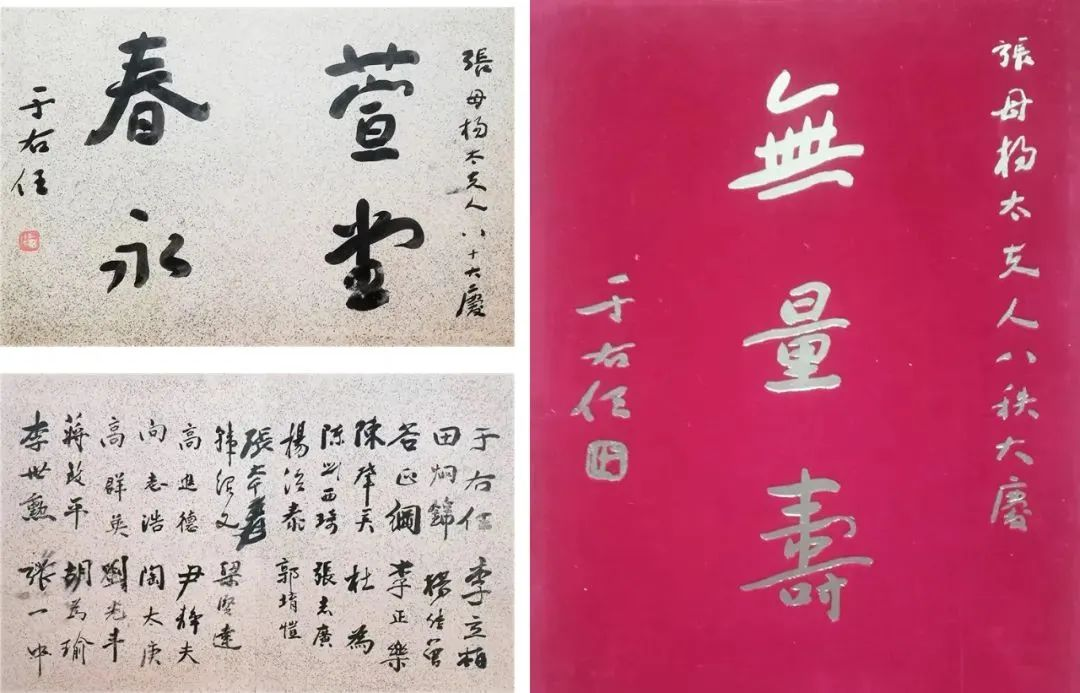 張母楊太夫人八十大慶
萱堂
春永
于右任
于右任 李立柏
田炯錦
谷正綱 李正樂
陳肇 杜為
張志廣
楊治泰 郭堉愷
張大千
文 梁賢達
高進德 尹靜夫
向志浩 陶太庚
高群英 劉光斗
蔣啟平 胡為瑜
李世勲 張一中
張母楊太夫人八秩大慶
無量壽
于右任